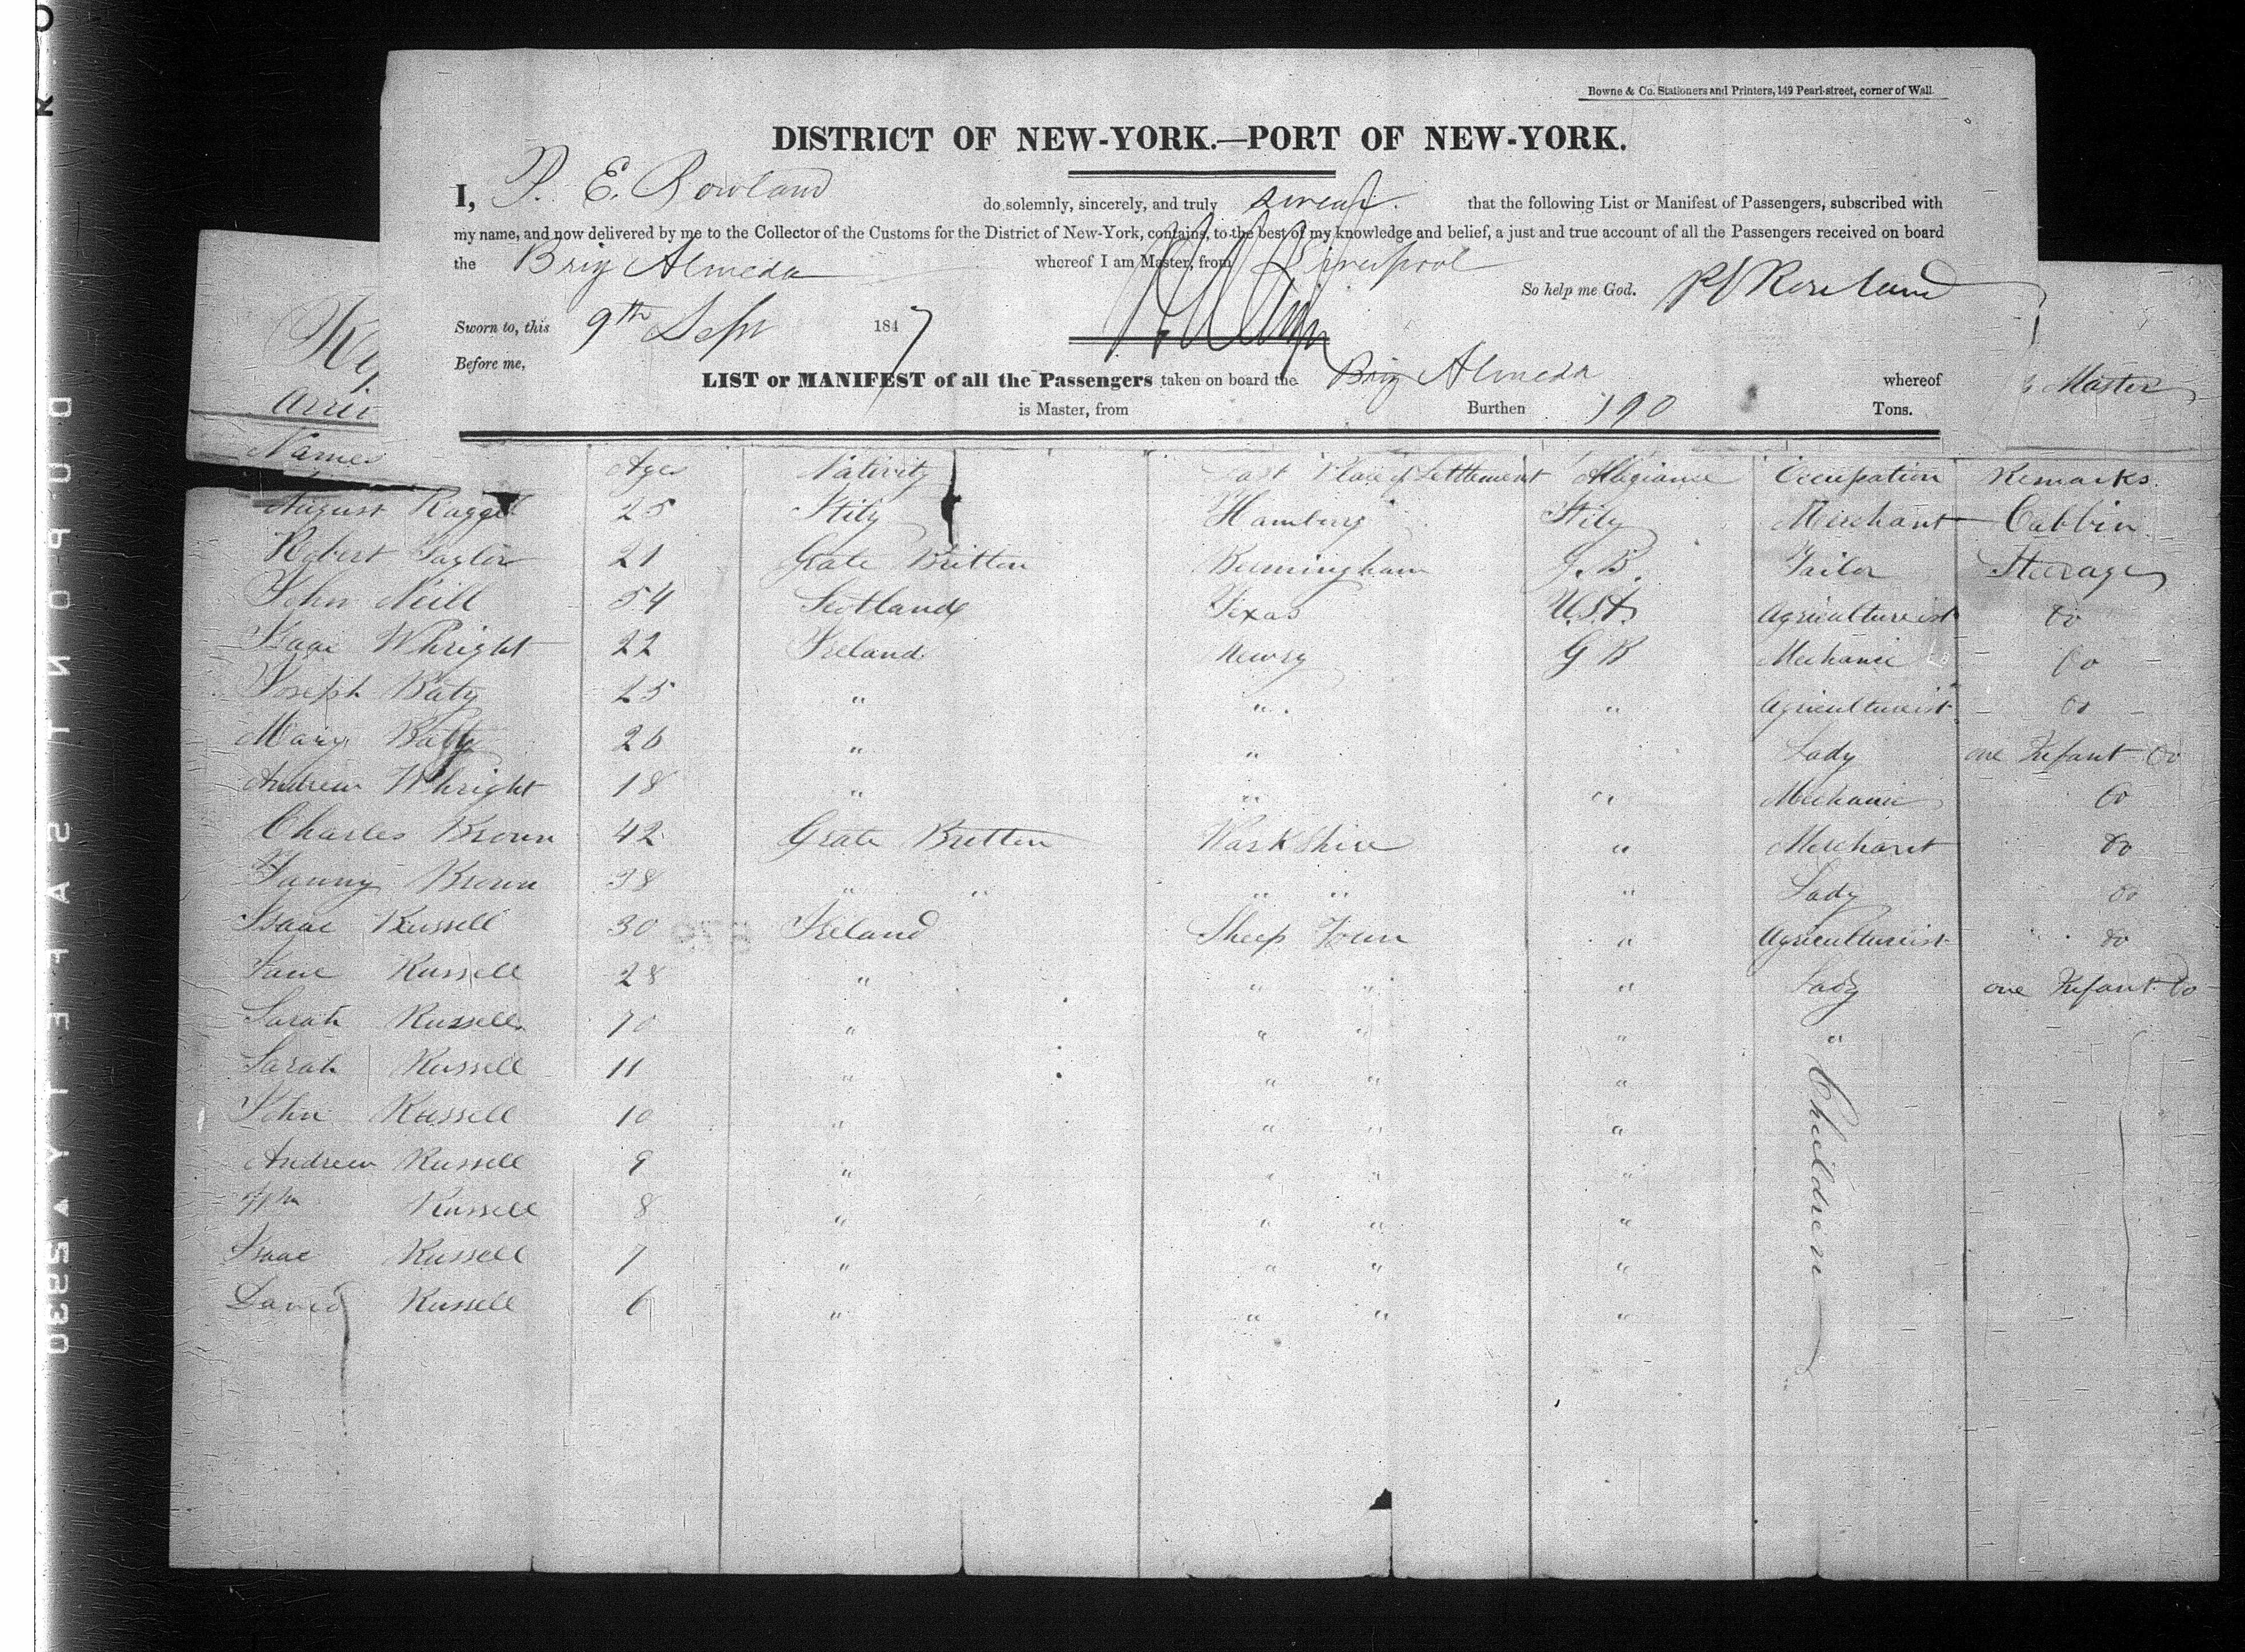 Bowne & Co. Stationers and Printers, 149 Pearl-street, corner of Wall.
DISTRICT OF NEW-YORK.—PORT OF NEW-YORK.
I, P. E. Rowland do solemnly, sincerely, and truly swear that the following List or Manifest of Passengers, subscribed with
my name, and now delivered by me to the Collector of the Customs for the District of New-York, contains, to the best of my knowledge and belief, a just and true account of all the Passengers received on board
the Brig Almeda whereof I am Master, from Liverpool
So help me God. P E Rowland
Sworn to, this 9th Sept 1847
Before me,
LIST or MANIFEST of all the Passengers taken on board the Brig Almeda whereof
is Master, from Burthen 190 Tons.
Master
Names Age Nativity Last Place of Settlement Allegiance Occupation Remarks
August Ragget 25 Hamburg Merchant Cabbin
Robert Taylor 21 Grate Britten Bermingham G. B. Tailor Steerage
John Neill 54 Scotland Texas U.S.A. Agricultureist Do
Isaac Whright 22 Ireland Newry G B Mechanic Do
Joseph Baty 25 " " " Agricultureist Do
Mary Baty 26 " " Lady one Infant Do
Andrew Whright 18 " " " Mechanic Do
Charles Brown 42 Grate Britten Warkshire " Merchant Do
Fanny Brown 38 " " " " " Lady Do
Isaac Russell 30 Ireland Sheep Town " Agricultureist Do
Jane Russell 28 " " " " Lady one Infant Do
Sarah Russell 70 " " " " "
Sarah Russell 11 " " " "
John Russell 10 " " " "
Andrew Russell 9 " " " "
Wm Russell 8 " " " "
Isaac Russell 7 " " " "
David Russell 6 " " " "
Children